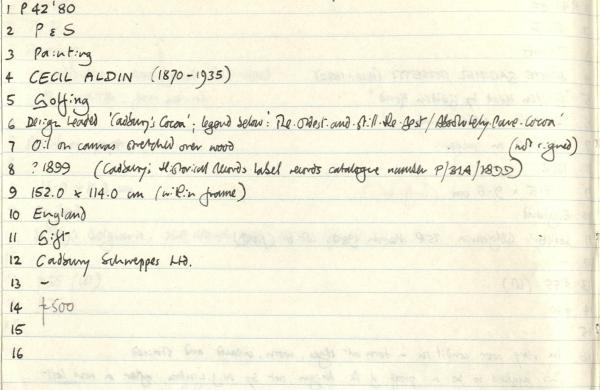 1 P 42'80
2 P & S
3 Painting
4 CECIL ALDIN (1870-1935)
5 Golfing
6 Design headed 'Cadbury's Cocoa'; legend below: 'The. Oldest. and. Still. the. Best / Absolutely. Pure. Cocoa'
7 Oil on canvas stretched over wood (not signed)
8 ? 1899 (Cadbury's Historical Records label records catalogue number P/31A/18DD)
9 152.0 x 114.0 cm (within frame)
10 England
11 Gift
12 Cadbury Schweppes Ltd.
13 -
14 £500
15
16